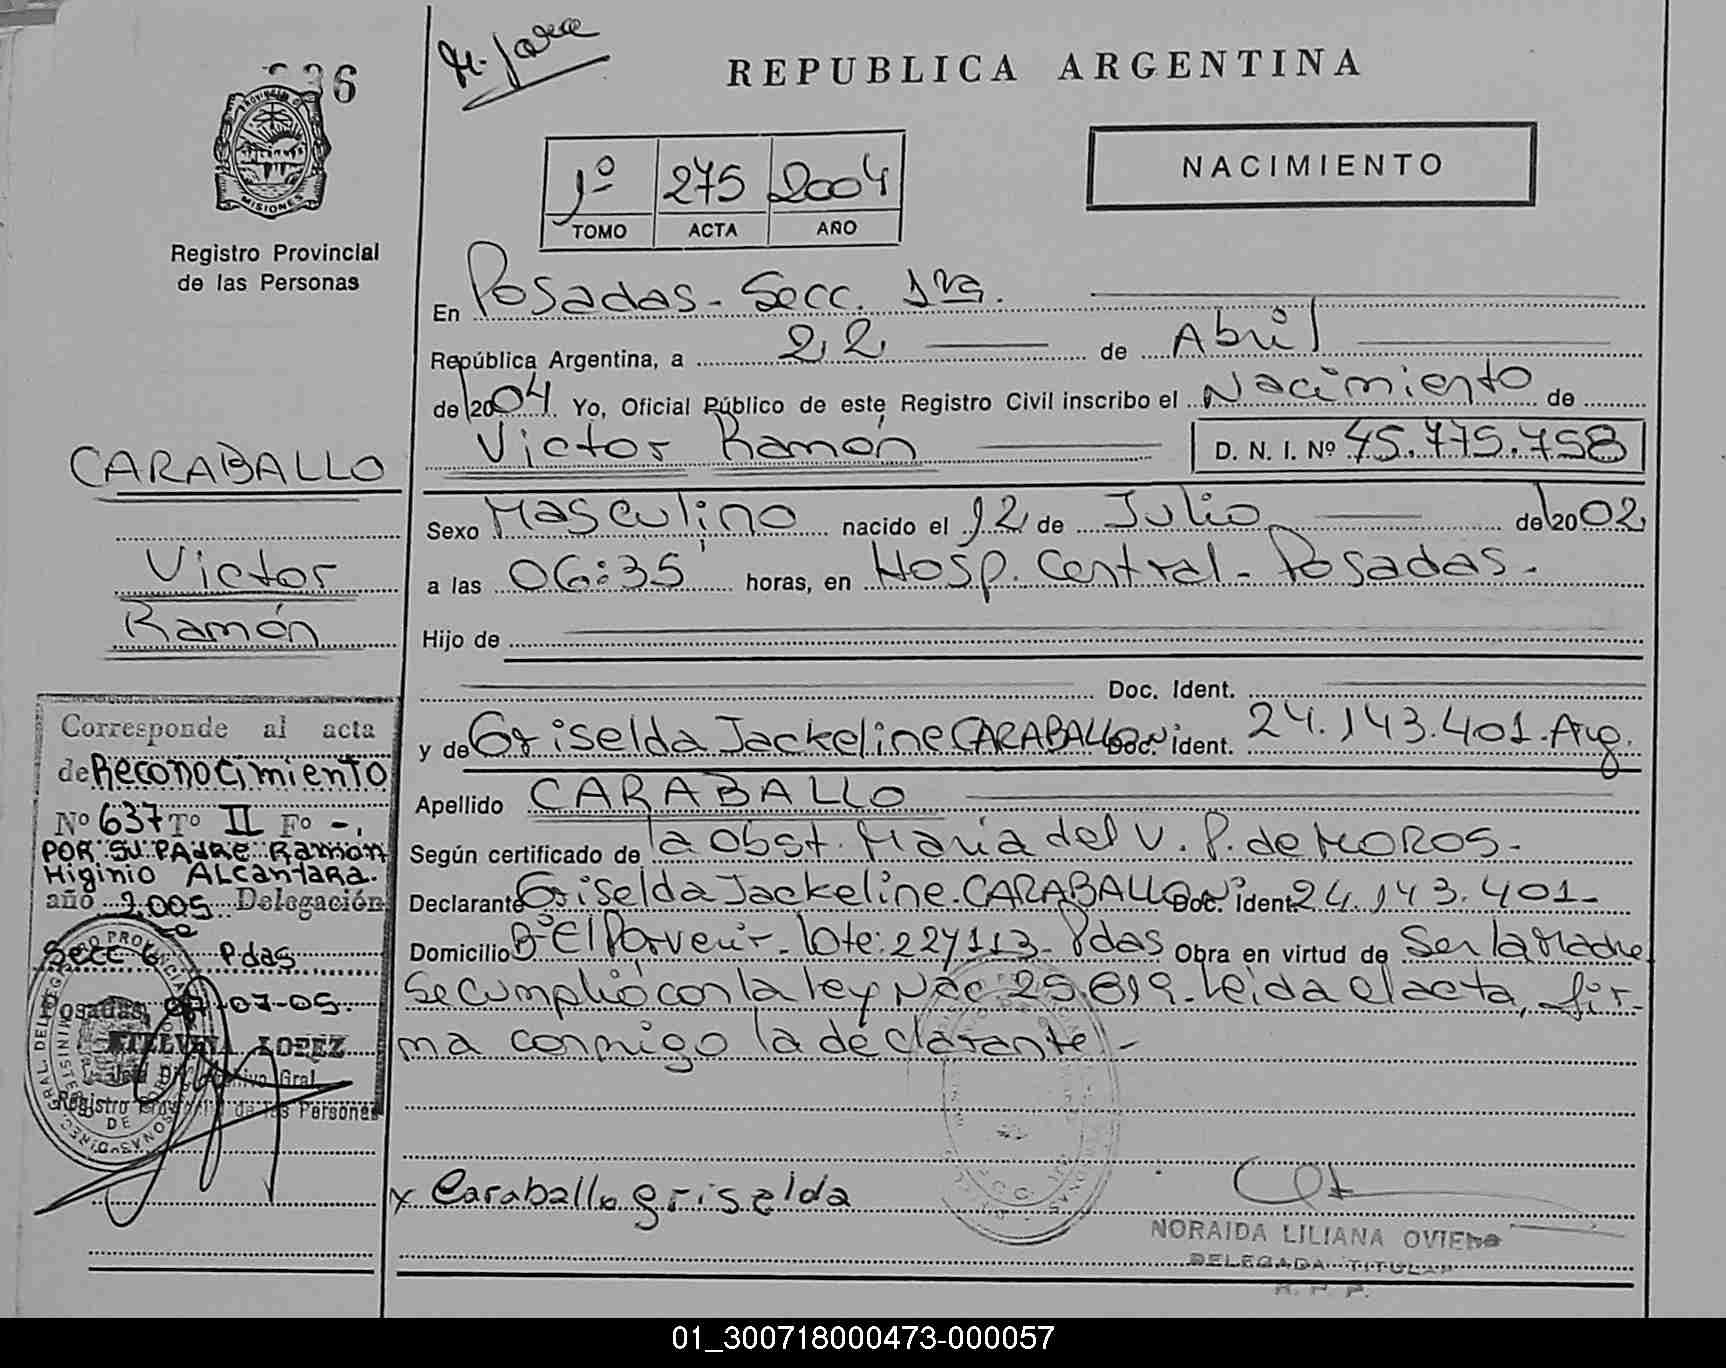 REPUBLICA ARGENTINA
PROVINCIA
MISIONES
Registro Provincial
de las Personas
1º 275 2004
TOMO ACTA AÑO
NACIMIENTO
En Posadas - Secc. 1ra.
República Argentina, a 22 de Abril
de 2004 Yo, Oficial Público de este Registro Civil inscribo el Nacimiento de
Victor Ramón D. N. I. Nº 45.775.758
CARABALLO
Victor
Ramón
Sexo Masculino nacido el 12 de Julio de 2002
a las 06:35 horas, en Hosp. Central - Posadas.
Hijo de
Doc. Ident.
y de Griselda Jackeline CARABALLO Doc. Ident. 24.143.401 Arg.
Apellido CARABALLO
Según certificado de la Obst. María del V. P. de MOROS-
Declarante Griselda Jackeline CARABALLO Doc. Ident. 24.143.401-
Domicilio Bº El Porvenir - lote: 227113 - Pdas Obra en virtud de Ser la Madre
Se cumplió con la ley Nac 25.819. Leída el acta, fir-
ma conmigo la declarante.-
Corresponde al acta
de Reconocimiento
Nº 637 Tº II Fº -.
POR SU PADRE Ramón
Higinio ALCantara.
año 2.005 Delegación
Secc 6 Pdas
Posadas, 07-07-05.
LOPEZ
Registro Provincial de las Personas
x Caraballo griselda
NORAIDA LILIANA OVIEDO
DELEGADA TITULAR
R. P. P.
01_300718000473-000057